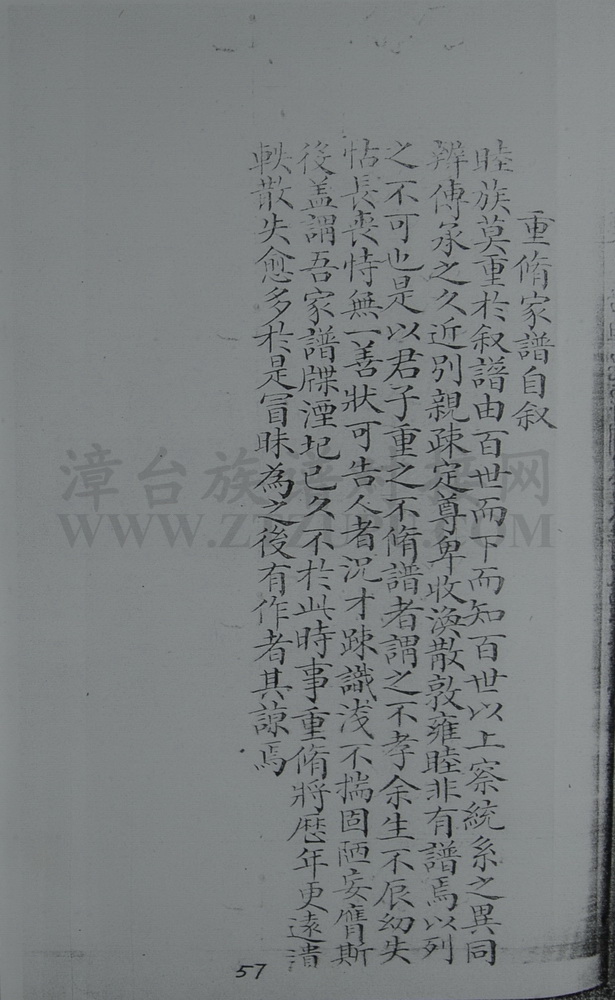 重脩家譜自叙
睦族莫重於叙譜由百世而下而知百世以上察統系之異同
辨傳承之久近别親疎定尊卑收渙散敦雍睦非有譜焉以列
之不可也是以君子重之不脩譜者謂之不孝余生不辰幼失
怙長喪恃無一善狀可告人者況才疎識浅不揣固陋妄膺斯
後盖謂吾家譜牒湮圮已久不於此時事重脩將歷年更遠潰
軼散失愈多於是冒昧為之後有作者其諒焉
漳台族譜对接网
57